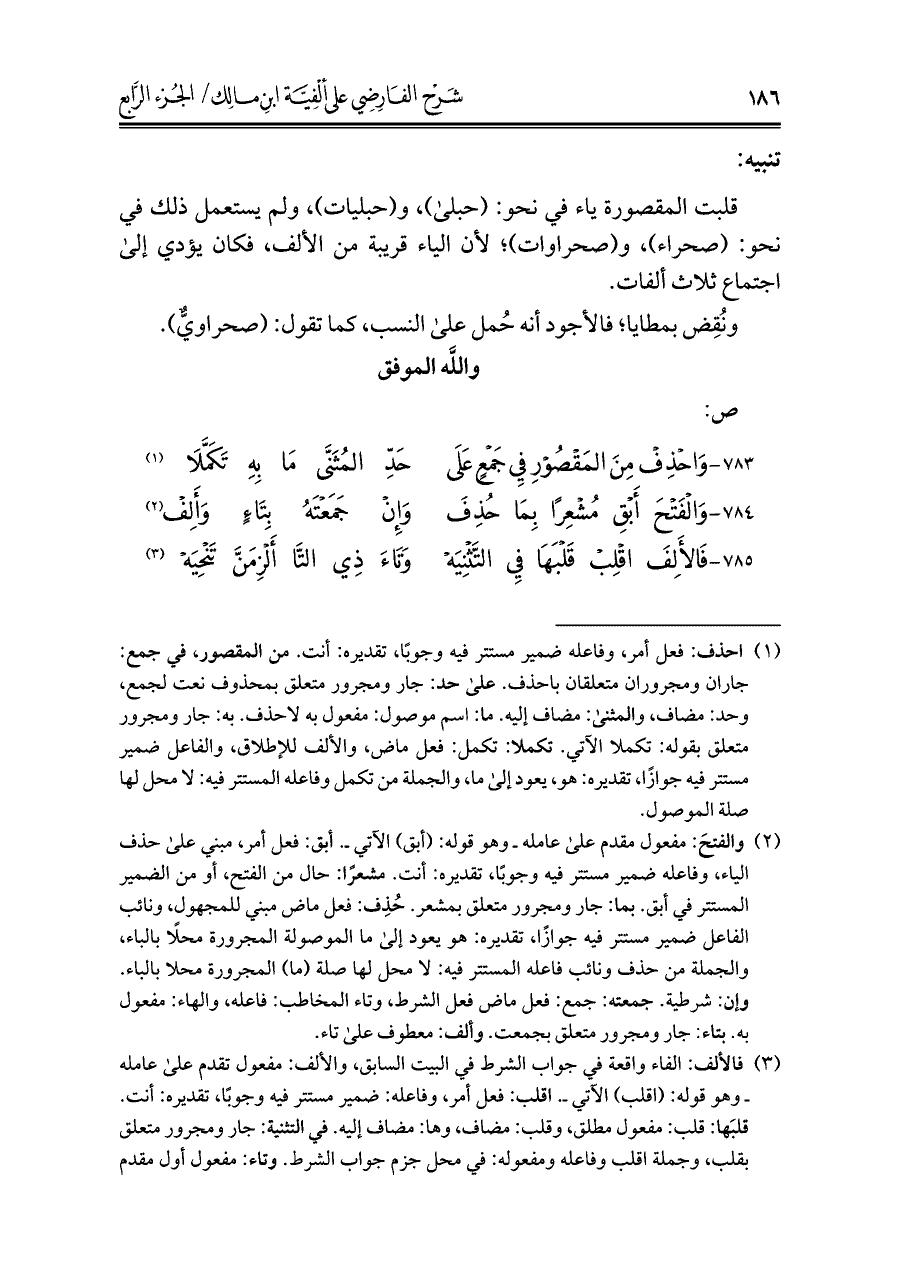 ١٨٦ شَرْح الفَارِضِي عَلى ألْفِيَّة ابنِ مالِك/ الجُزء الرَّابع
تنبيه:
قلبت المقصورة ياء في نحو: (حبلىٰ)، و(حبليات)، ولم يستعمل ذلك في
نحو: (صحراء)، و(صحراوات)؛ لأن الياء قريبة من الألف، فكان يؤدي إلىٰ
اجتماع ثلاث ألفات.
ونُقِض بمطايا؛ فالأجود أنه حُمل علىٰ النسب، كما تقول: (صحراويٌّ).
واللَّه الموفق
ص:
٧٨٣-وَاحْذِفْ مِنَ المَقْصُوْرِ فِي جَمْعٍ عَلَى حَدِّ المُثَنَّى مَا بِهِ تَكَمَّلَا (١)
٧٨٤-وَالْفَتْحَ أَبْقِ مُشْعِرًا بِمَا حُذِفَ وَإِنْ جَمَعْتَهُ بِتَاءٍ وَأَلِفْ(٢)
٧٨٥-فَالأَلِفَ اقْلِبْ قَلْبَهَا فِي التَّثْنِيَهْ وَتَاءَ ذِي التَّا أَلْزِمَنَّ تَنْحِيَهْ (٣)
(١) احذف: فعل أمر، وفاعله ضمير مستتر فيه وجوبًا، تقديره: أنت. من المقصور، في جمع:
جاران ومجروران متعلقان باحذف. علىٰ حد: جار ومجرور متعلق بمحذوف نعت لجمع،
وحد: مضاف، والمثنىٰ: مضاف إليه. ما: اسم موصول: مفعول به لاحذف. به: جار ومجرور
متعلق بقوله: تكملا الآتي. تكملا: تكمل: فعل ماض، والألف للإطلاق، والفاعل ضمير
مستتر فيه جوازًا، تقديره: هو، يعود إلىٰ ما، والجملة من تكمل وفاعله المستتر فيه: لا محل لها
صلة الموصول.
(٢) والفتحَ: مفعول مقدم علىٰ عامله ـ وهو قوله: (أبق) الآتي ـ. أبق: فعل أمر، مبني علىٰ حذف
الياء، وفاعله ضمير مستتر فيه وجوبًا، تقديره: أنت. مشعرًا: حال من الفتح، أو من الضمير
المستتر في أبق. بما: جار ومجرور متعلق بمشعر. حُذِف: فعل ماض مبني للمجهول، ونائب
الفاعل ضمير مستتر فيه جوازًا، تقديره: هو يعود إلىٰ ما الموصولة المجرورة محلًا بالباء،
والجملة من حذف ونائب فاعله المستتر فيه: لا محل لها صلة (ما) المجرورة محلا بالباء.
وإن: شرطية. جمعته: جمع: فعل ماض فعل الشرط، وتاء المخاطب: فاعله، والهاء: مفعول
به. بتاء: جار ومجرور متعلق بجمعت. وألف: معطوف علىٰ تاء.
(٣) فالألف: الفاء واقعة في جواب الشرط في البيت السابق، والألف: مفعول تقدم علىٰ عامله
ـ وهو قوله: (اقلب) الآتي ـ. اقلب: فعل أمر، وفاعله: ضمير مستتر فيه وجوبًا، تقديره: أنت.
قلبَها: قلب: مفعول مطلق، وقلب: مضاف، وها: مضاف إليه. في التثنية: جار ومجرور متعلق
بقلب، وجملة اقلب وفاعله ومفعوله: في محل جزم جواب الشرط. وتاء: مفعول أول مقدم